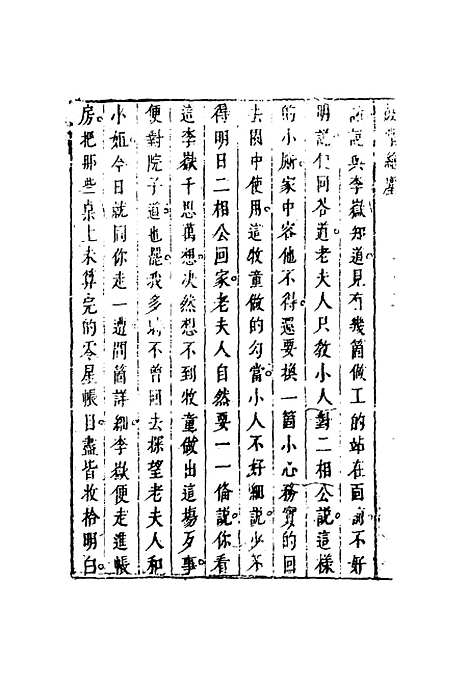 鼓掌絕塵
訴說與李嶽知道。見有幾箇做工的站在面前。不好
明說。便回答道。老夫人只教小人對二相公說。這樣
的小廝家中容他不得。還要換一箇小心務實的回
去園中使用。這牧童做的勾當。小人不好細說。少不
得明日二相公回家。老夫人自然要一一備說。你看
這李嶽千思萬想。决然想不到牧童做出這場歹事。
便對院子道。也罷。我多時不曾回去探望老夫人和
小姐。今日就同你走一遭。問箇詳細。李嶽便走進帳
房。把那些桌上未算完的零星帳目。盡皆收拾明白。